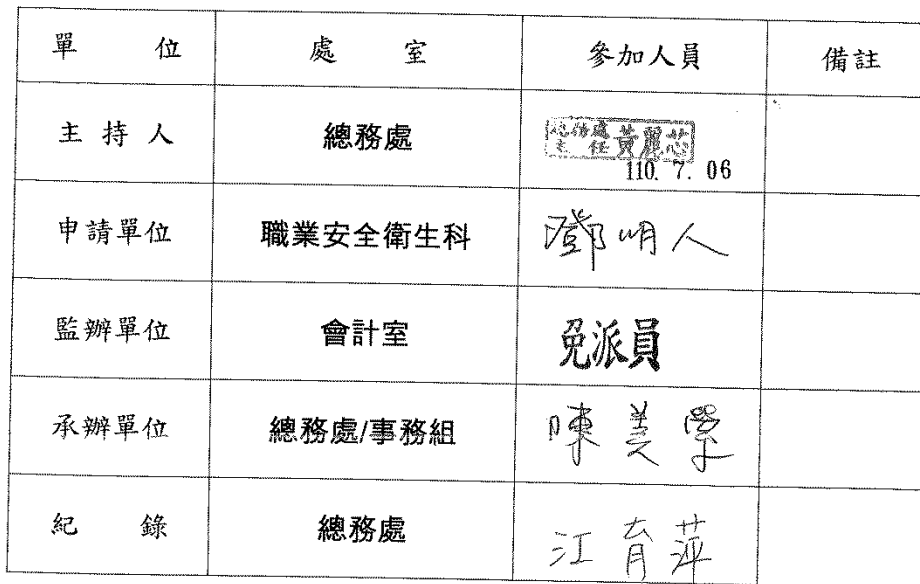 單 位 處 室 參加人員 備註
主 持 人 總務處 總務處主任 黃麗芯
110. 7. 06
申請單位 職業安全衛生科 鄧明人
監辦單位 會計室 免派員
承辦單位 總務處/事務組 陳美學
紀 錄 總務處 江育萍